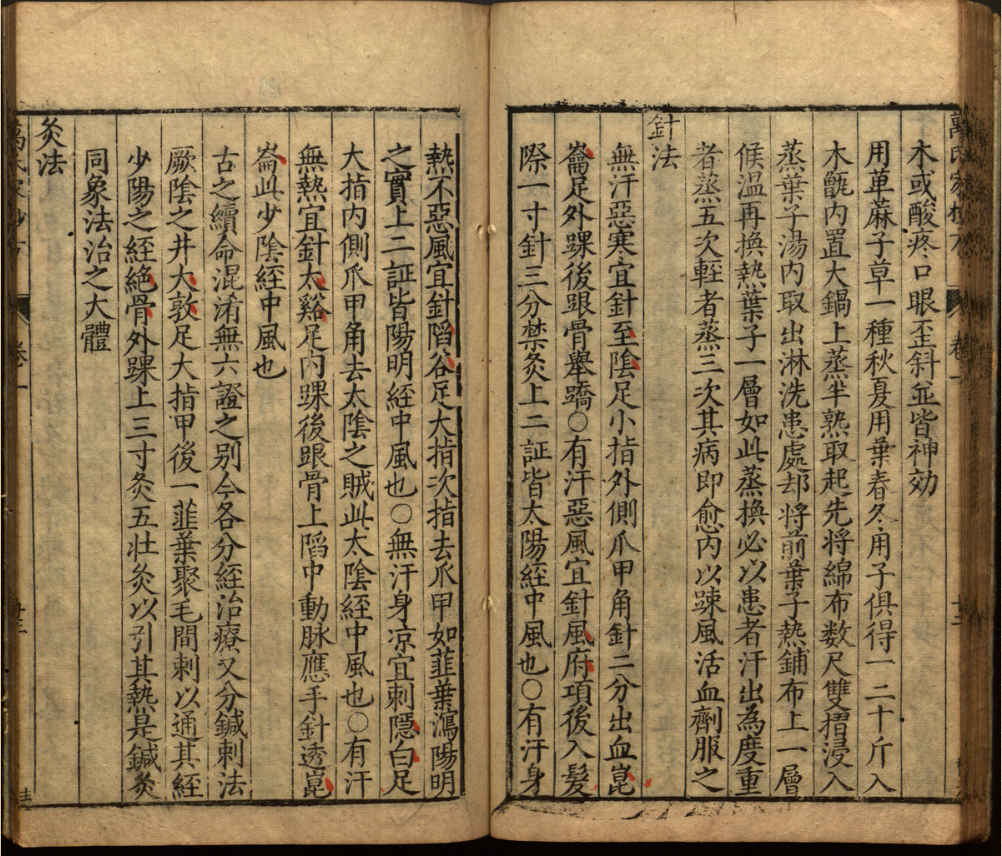 木或酸疼口眼歪斜並皆神効
用萆蔴子草一種秋夏用葉春冬用子俱得一二十斤入
木甑内置大鍋上蒸半熟取起先將綿布数尺雙摺浸入
蒸葉子湯内取出淋洗患處却將前葉子熱鋪布上一層
候温再換熱葉子一層如此蒸換必以患者汗出為度重
者蒸五次輊者蒸三次其病即愈内以踈風活血劑服之
針法
無汗惡寒宜針至陰足小指外側爪甲角針二分出血崑
崙足外踝後跟骨舉蹻○有汗惡風宜針風府項後入髮
際一寸針三分禁灸上二証皆太陽經中風也○有汗身
熱不惡風宜針陷谷足大指次指去爪甲如韮葉瀉陽明
之實上二証皆陽明經中風也○無汗身凉宜刺隱白足
大指内側爪甲角去太陰之賊此太陰經中風也○有汗
無熱宜針太谿足内踝後跟骨上陷中動脉應手針透崑
崙此少陰經中風也
古之續命混淆無六證之别今各分經治療又分鍼刺法
厥陰之井大敦足大指甲後一韮葉聚毛間刺以通其經
少陽之經絶骨外踝上三寸灸五壮灸以引其熱是鍼灸
同象法治之大體
灸法
卷一